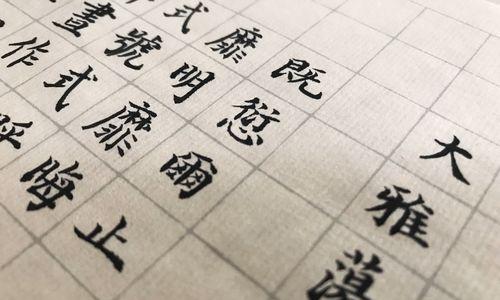 大雅蕩
既愆爾止
靡明靡晦
式號式呼
晝作